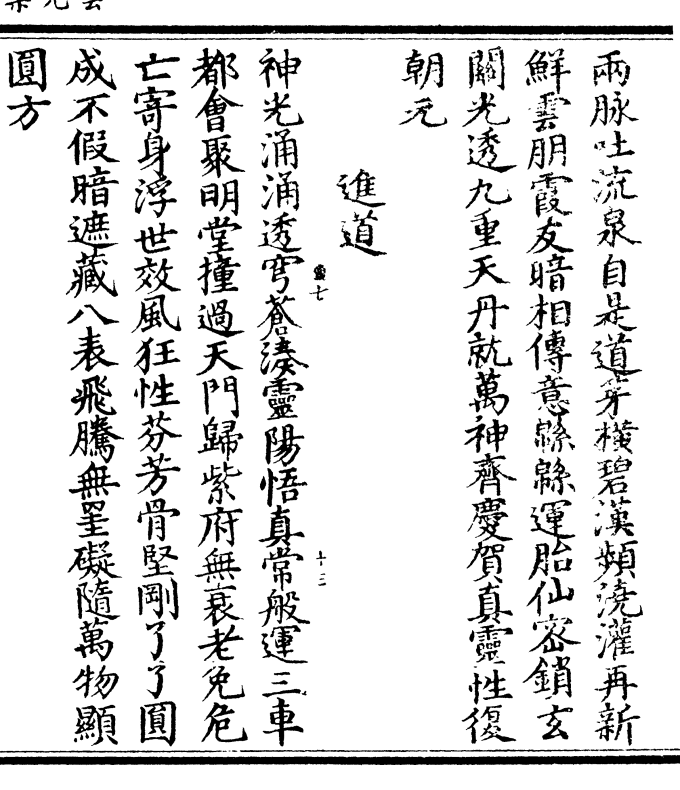 兩脉吐流泉自是道芽橫碧漢頻澆灌再新
鮮雲朋霞友暗相傳意緜緜運胎仙密鎖玄
關光透九重天丹就萬神齊慶賀真靈性復
朝元
進道
神光涌涌透穹蒼湊靈陽悟真常般運三車
都會聚明堂撞過天門歸紫府無衰老免危
亡寄身浮世效風狂性芬芳骨堅剛了了圓
成不假暗遮藏八表飛騰無罣礙隨萬物顯
圓方
七
十三